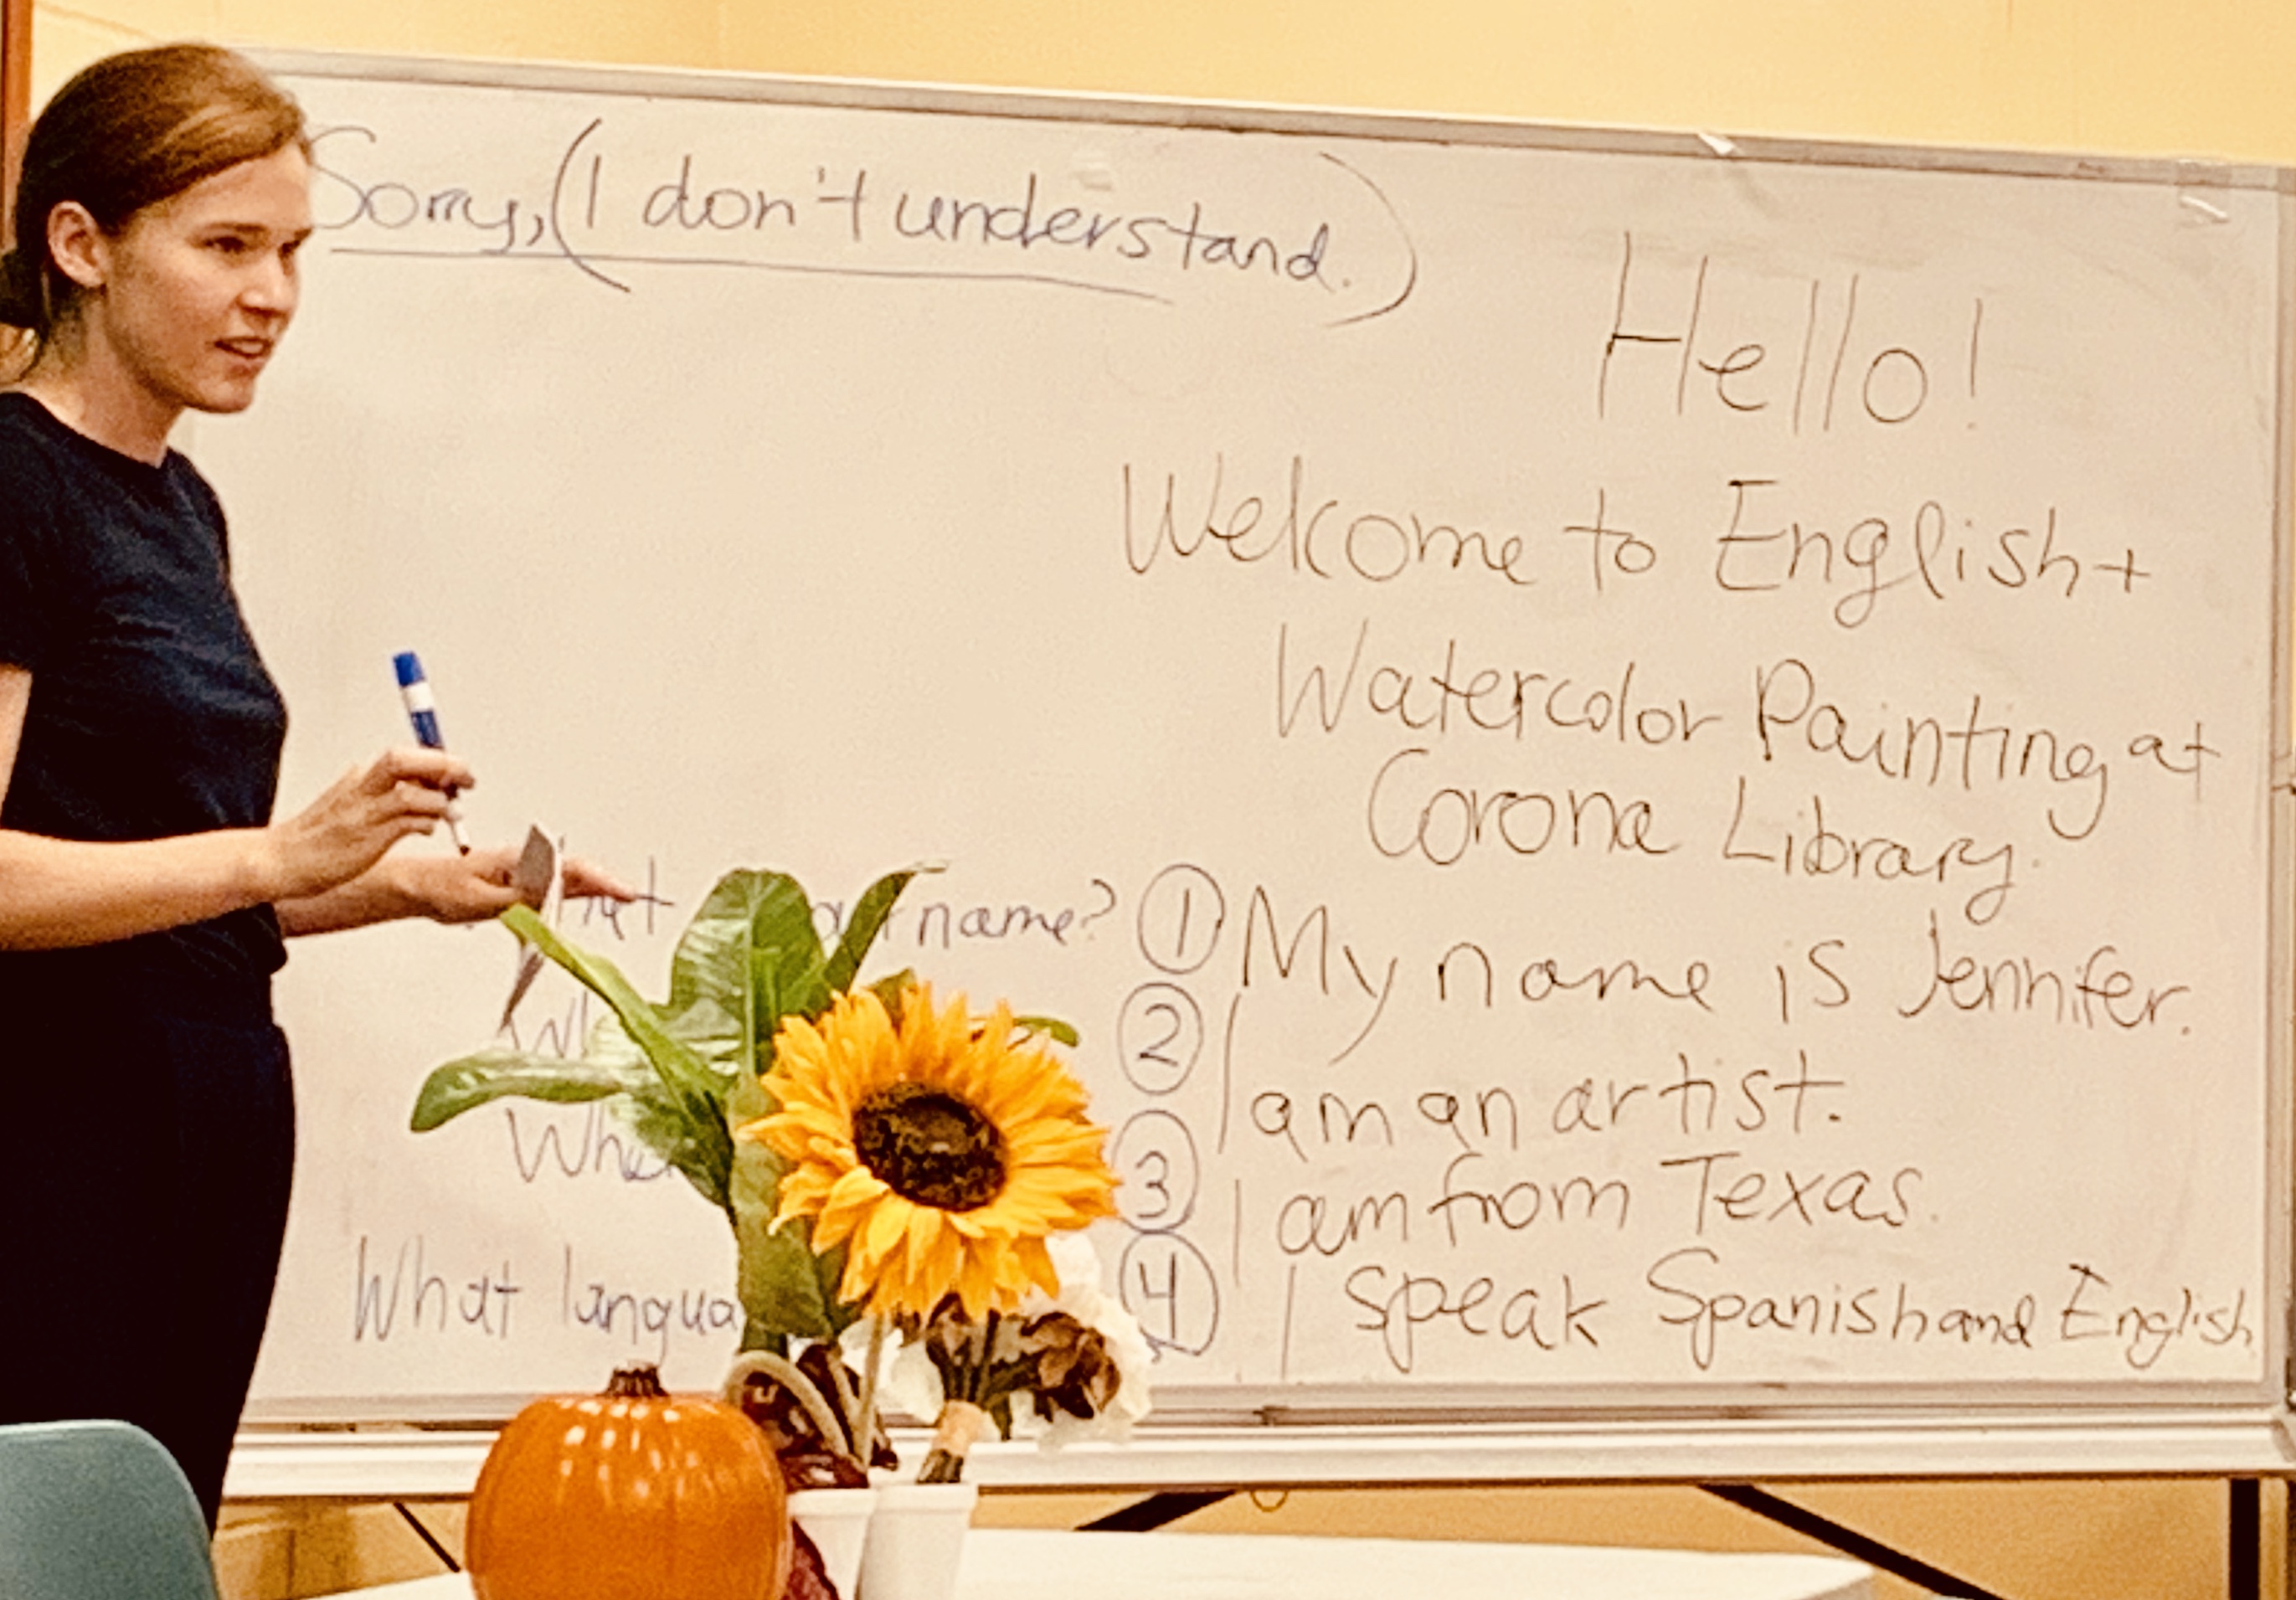 Sorry, (I don't understand.)
Hello!
Welcome to English +
Watercolor Painting at
Corona Library.
name? ① My name is Jennifer.
② I am an artist.
③ I am from Texas.
What ④ I speak Spanish and English